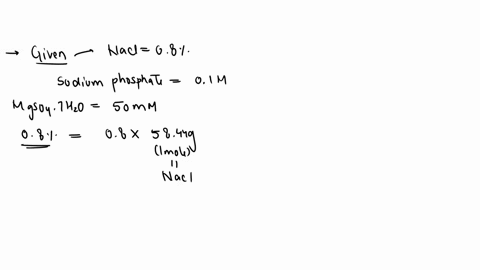 → Given — NaCl = 0.8%.
Sodium phosphate = 0.1 M
MgSO4.7H2O = 50 mM
0.8% = 0.8 × 58.44g
(1mole)
=
NaCl